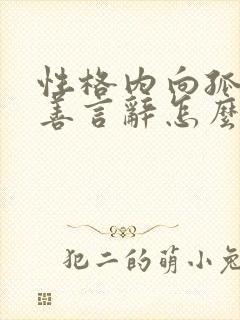 性格内向孤
善言辭怎麼
犯二的萌小兔